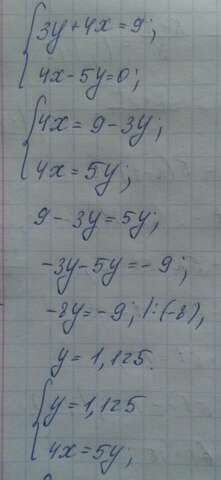 3y + 4x = 9;
4x - 5y = 0;
4x = 9 - 3y;
4x = 5y;
9 - 3y = 5y;
-3y - 5y = -9;
-8y = -9; |:(-8),
y = 1,125.
y = 1,125
4x = 5y;